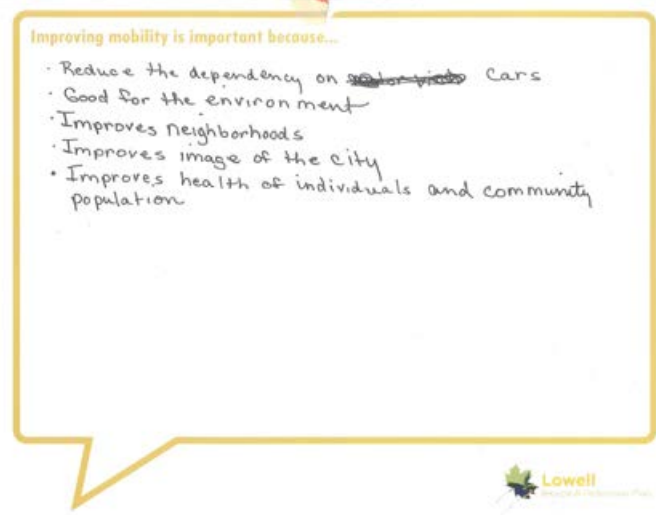 Improving mobility is important because...
· Reduce the dependency on cars
· Good for the environment
· Improves neighborhoods
· Improves image of the city
· Improves health of individuals and community
population
Lowell